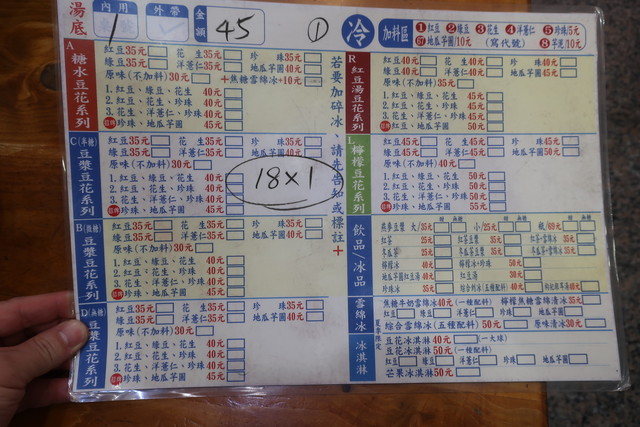 湯底 1 內用 外帶 金額 45 ① 冷 加料區 ①紅豆②綠豆③花生④洋薏仁⑤珍珠/5元
⑥⑦地瓜芋圓/10元 (寫代號) ⑧芋泥/10元
A 糖水豆花系列
紅豆35元 花生35元 珍珠35元
綠豆35元 洋薏仁35元 地瓜芋圓40元
原味(不加料)30元 +焦糖雪綿冰+10元
1. 紅豆、綠豆、花生 40元
2. 紅豆、花生、珍珠 40元
3. 花生、洋薏仁、珍珠 40元
珍珠、地瓜芋圓 45元
C(半糖) 豆漿豆花系列
紅豆35元 花生35元 珍珠35元
綠豆35元 洋薏仁35元 地瓜芋圓40元
原味(不加料)30元
1. 紅豆、綠豆、花生 40元
2. 紅豆、花生、珍珠 40元
3. 花生、洋薏仁、珍珠 40元
珍珠、地瓜芋圓 45元
18×1
B(微糖) 豆漿豆花系列
紅豆35元 花生35元 珍珠35元
綠豆35元 洋薏仁35元 地瓜芋圓40元
原味(不加料)30元
1. 紅豆、綠豆、花生 40元
2. 紅豆、花生、珍珠 40元
3. 花生、洋薏仁、珍珠 40元
珍珠、地瓜芋圓 45元
D(無糖) 豆漿豆花系列
紅豆35元 花生35元 珍珠35元
綠豆35元 洋薏仁35元 地瓜芋圓40元
原味(不加料)30元
1. 紅豆、綠豆、花生 40元
2. 紅豆、花生、珍珠 40元
3. 花生、洋薏仁、珍珠 40元
珍珠、地瓜芋圓 45元
若要加碎冰、請先告知或標註+
R 紅豆湯豆花系列
紅豆40元 花生40元 珍珠40元
綠豆40元 洋薏仁40元 地瓜芋圓45元
原味(不加料)35元
1. 紅豆、綠豆、花生 45元
2. 紅豆、花生、珍珠 45元
3. 花生、洋薏仁、珍珠 45元
珍珠、地瓜芋圓 50元
L 檸檬豆花系列
紅豆45元 花生45元 珍珠45元
綠豆45元 洋薏仁45元 地瓜芋圓50元
原味(不加料)40元
1. 紅豆、綠豆、花生 50元
2. 紅豆、花生、珍珠 50元
3. 花生、洋薏仁、珍珠 50元
珍珠、地瓜芋圓 55元
飲品/冰品
燕麥豆漿 大/35元 小/25元 瓶/69元
紅茶 25元 紅茶豆漿 35元 紅茶+雪綿冰 35元
冬瓜茶 25元 冬瓜茶豆漿 35元
檸檬冰 40元 檸檬冰+珍珠 50元
地瓜芋圓紅豆湯 40元 紅豆湯 30元
珍珠冰 35元 綜合剉冰(五種配料)
雪綿冰
焦糖牛奶雪綿冰40元(一種配料) 檸檬焦糖雪綿清冰35元
綜合雪綿冰(五種配料)50元 原味清冰30元
夏季限定 冰淇淋
豆花冰淇淋 40元(一大球)
豆花冰淇淋 50元(一種配料)
紅豆 綠豆 花生 洋薏仁 珍珠 地瓜芋圓
芒果冰淇淋50元